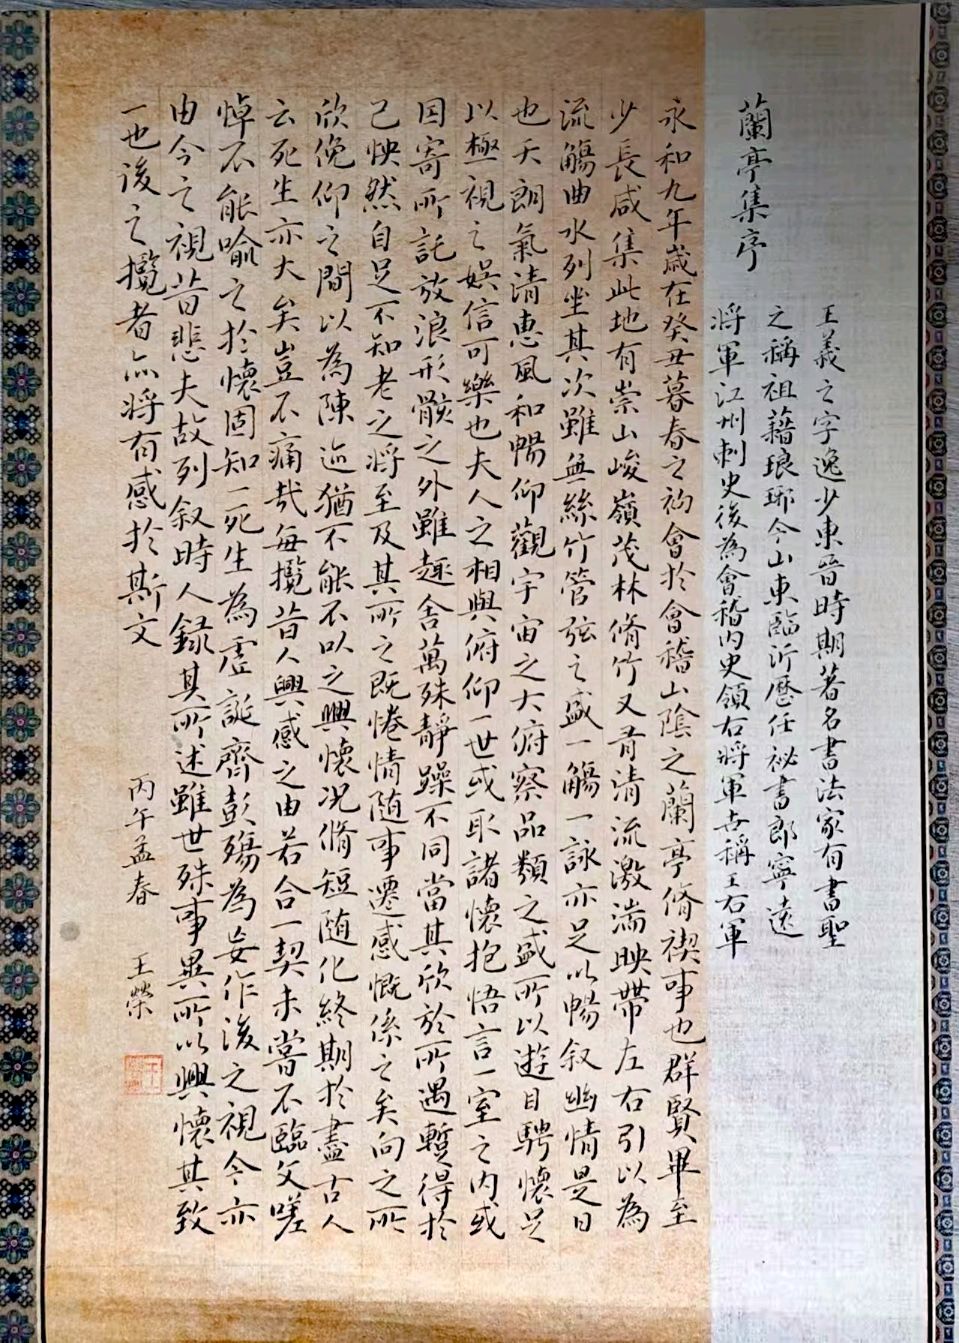 蘭亭集序
王羲之字逸少東晉時期著名書法家有書聖
之稱祖藉琅琊今山東臨沂歷任祕書郎寧遠
將軍江州刺史後為會稽內史領右將軍世稱王右軍
永和九年歲在癸丑暮春之初會於會稽山陰之蘭亭脩禊事也群賢畢至
少長咸集此地有崇山峻嶺茂林脩竹又有清流激湍映帶左右引以為
流觴曲水列坐其次雖無絲竹管弦之盛一觴一詠亦足以暢叙幽情是日
也天朗氣清惠風和暢仰觀宇宙之大俯察品類之盛所以遊目騁懷足
以極視之娛信可樂也夫人之相與俯仰一世或取諸懷抱悟言一室之內或
因寄所託放浪形骸之外雖趣舍萬殊靜躁不同當其欣於所遇暫得於
己怏然自足不知老之將至及其所之既惓情隨事遷感慨係之矣向之所
欣俛仰之間以為陳迹猶不能不以之興懷況脩短隨化終期於盡古人
云死生亦大矣豈不痛哉每攬昔人興感之由若合一契未嘗不臨文嗟
悼不能喻之於懷固知一死生為虛誕齊彭殤為妄作後之視今亦
由今之視昔悲夫故列叙時人錄其所述雖世殊事異所以興懷其致
一也後之攬者亦將有感於斯文
丙午孟春 王榮